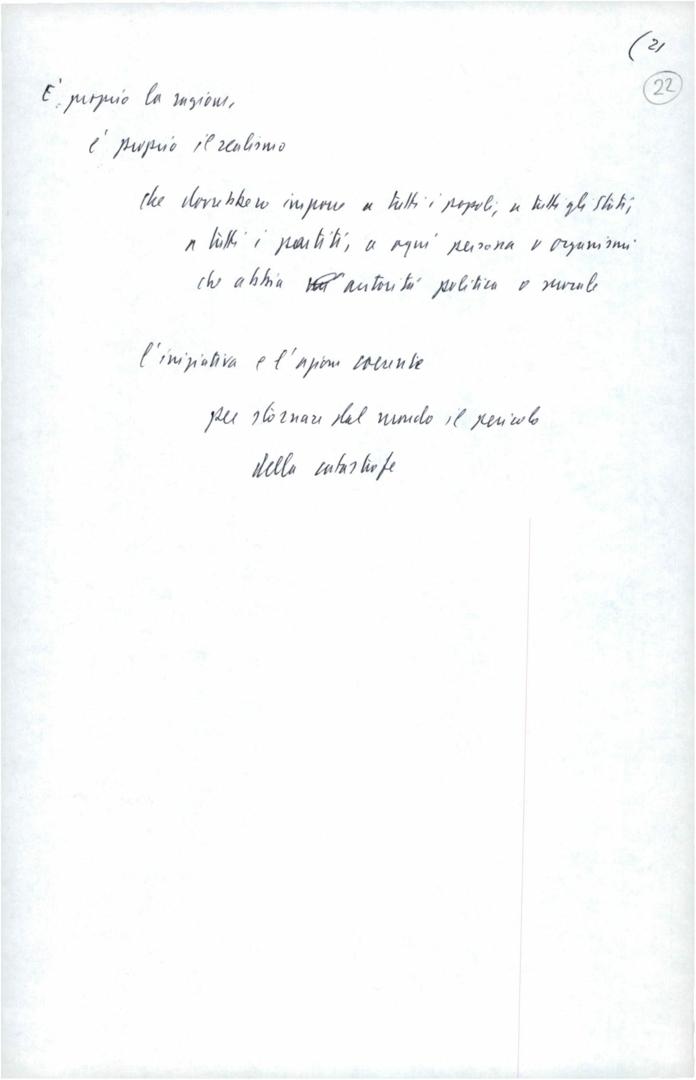 (21
22
E' proprio la ragione,
è proprio il realismo
che dovrebbero imporre a tutti i popoli, a tutti gli Stati,
a tutti i partiti, a ogni persona o organismi
che abbia autorità politica o morale
l'iniziativa e l'azione coerente
per stornare dal mondo il pericolo
della catastrofe